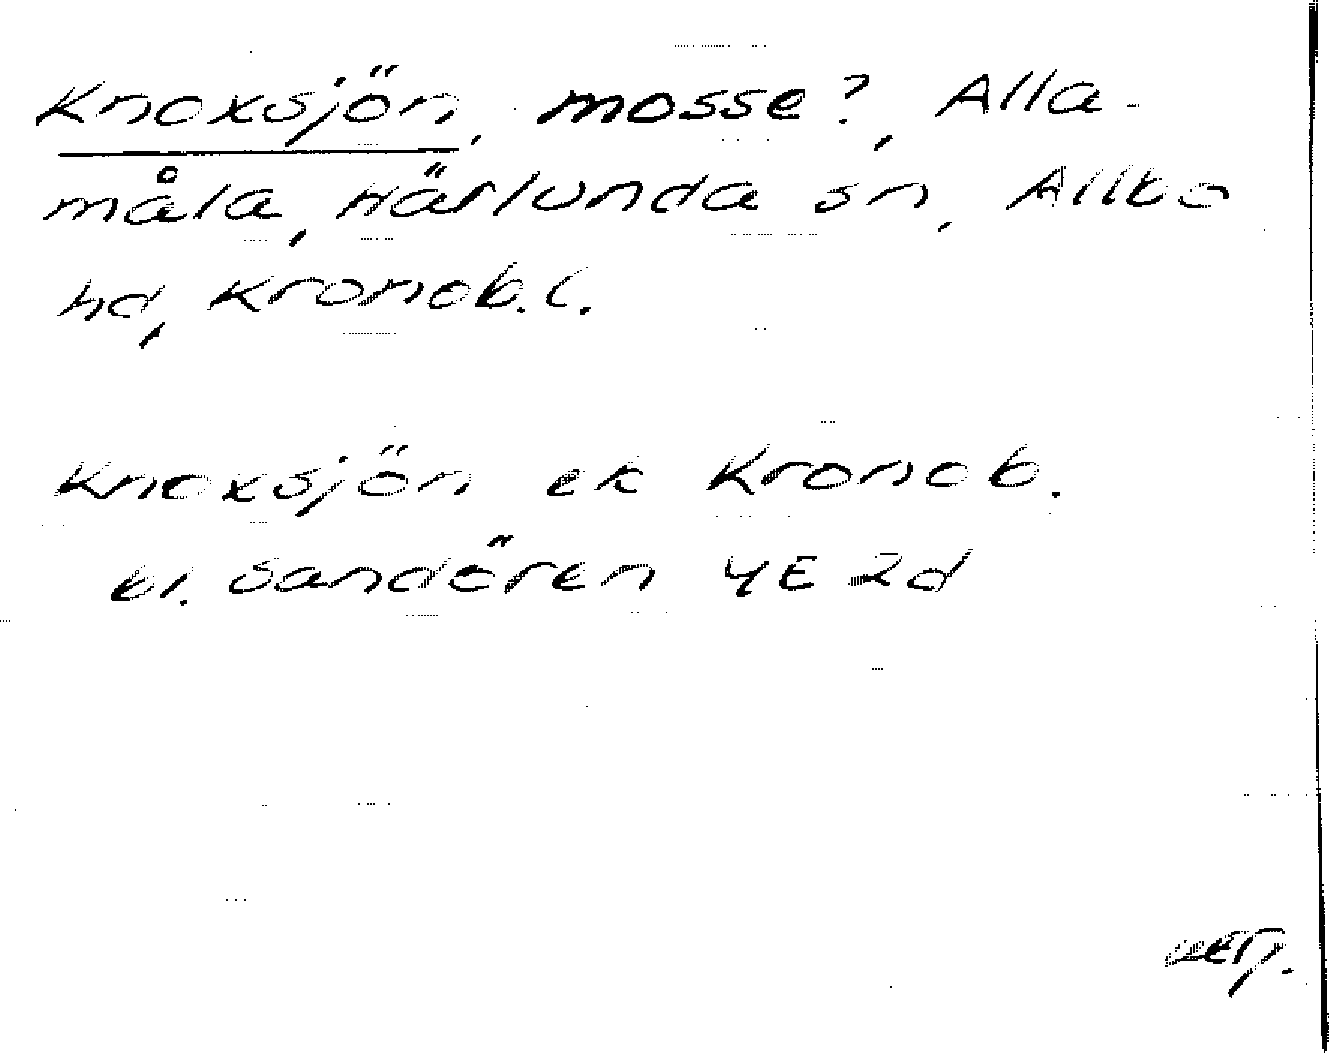 Knoxsjön, mosse?, Alla-
måla, Härlunda sn, Allbo
hd, Kronob. l.
Knoxsjön ek Kronob.
bl. Sandören 4E 2d